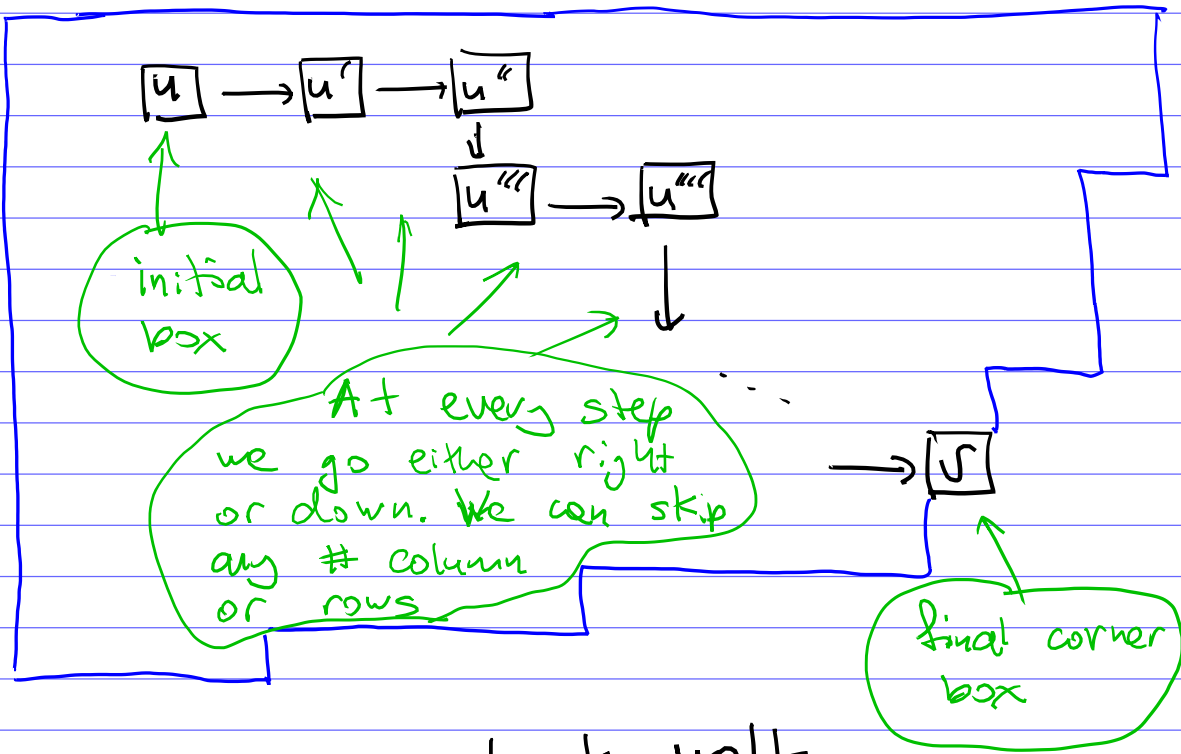 u → u′ → u″
↓
u‴ → u⁗
↓
initial
box
At every step
we go either right
or down. We can skip
any # column
or rows
⋱
→ v
final corner
box